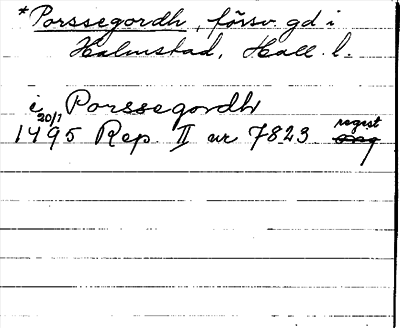 *Porssegordh, försv. gd i
Halmstad, Hall. l.
i Porssegordh
20/7
1495 Rep II nr 7823 regist
orig